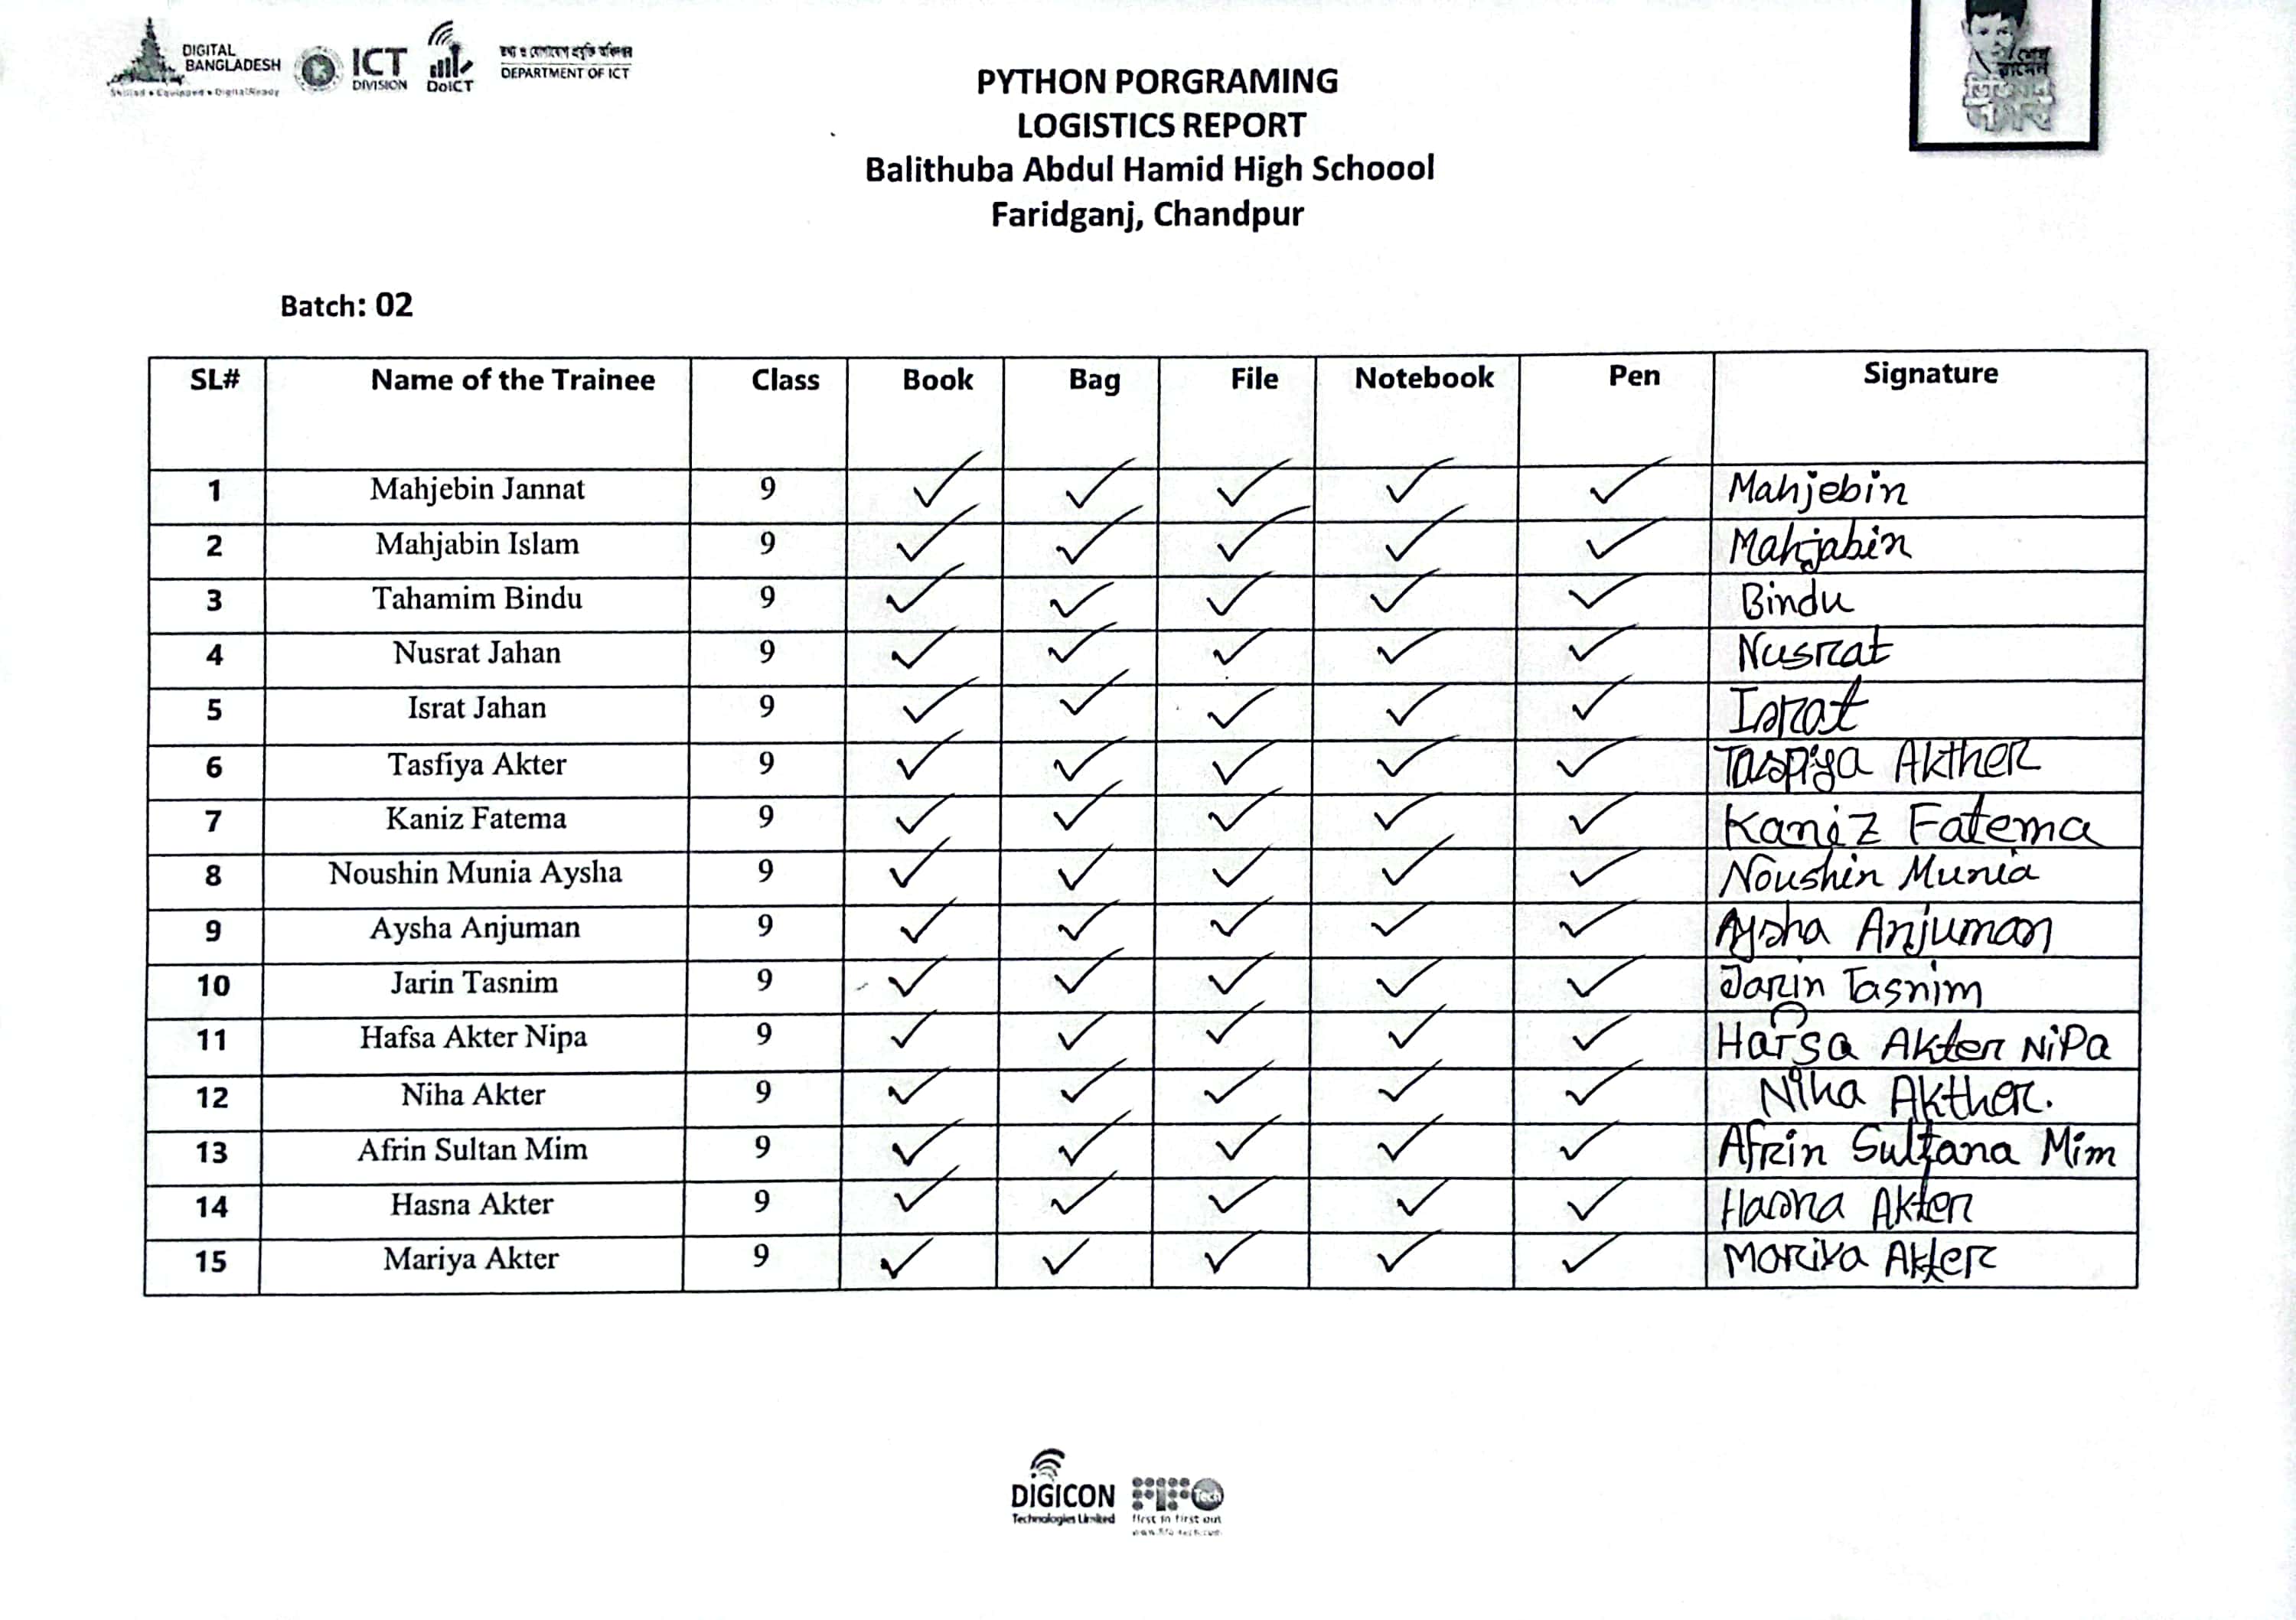 DIGITAL
BANGLADESH
Skilled • Equipped • DigitalReady
ICT
DIVISION
DoICT
তথ্য ও যোগাযোগ প্রযুক্তি অধিদপ্তর
DEPARTMENT OF ICT
শেখ
রাসেল
PYTHON PORGRAMING
LOGISTICS REPORT
Balithuba Abdul Hamid High Schoool
Faridganj, Chandpur
Batch: 02
SL# Name of the Trainee Class Book Bag File Notebook Pen Signature
1 Mahjebin Jannat 9 ✓ ✓ ✓ ✓ ✓ Mahjebin
2 Mahjabin Islam 9 ✓ ✓ ✓ ✓ ✓ Mahjabin
3 Tahamim Bindu 9 ✓ ✓ ✓ ✓ ✓ Bindu
4 Nusrat Jahan 9 ✓ ✓ ✓ ✓ ✓ Nusrat
5 Israt Jahan 9 ✓ ✓ ✓ ✓ ✓ Israt
6 Tasfiya Akter 9 ✓ ✓ ✓ ✓ ✓ Taspiya Akther
7 Kaniz Fatema 9 ✓ ✓ ✓ ✓ ✓ Kaniz Fatema
8 Noushin Munia Aysha 9 ✓ ✓ ✓ ✓ ✓ Noushin Munia
9 Aysha Anjuman 9 ✓ ✓ ✓ ✓ ✓ Aysha Anjuman
10 Jarin Tasnim 9 ✓ ✓ ✓ ✓ ✓ Jarin Tasnim
11 Hafsa Akter Nipa 9 ✓ ✓ ✓ ✓ ✓ Hafsa Akter NiPa
12 Niha Akter 9 ✓ ✓ ✓ ✓ ✓ Niha Akther.
13 Afrin Sultan Mim 9 ✓ ✓ ✓ ✓ ✓ Afrin Sultana Mim
14 Hasna Akter 9 ✓ ✓ ✓ ✓ ✓ Hasna Akter
15 Mariya Akter 9 ✓ ✓ ✓ ✓ ✓ Mariya Akter
DIGICON
Technologies Limited
FIFO Tech
first in first out